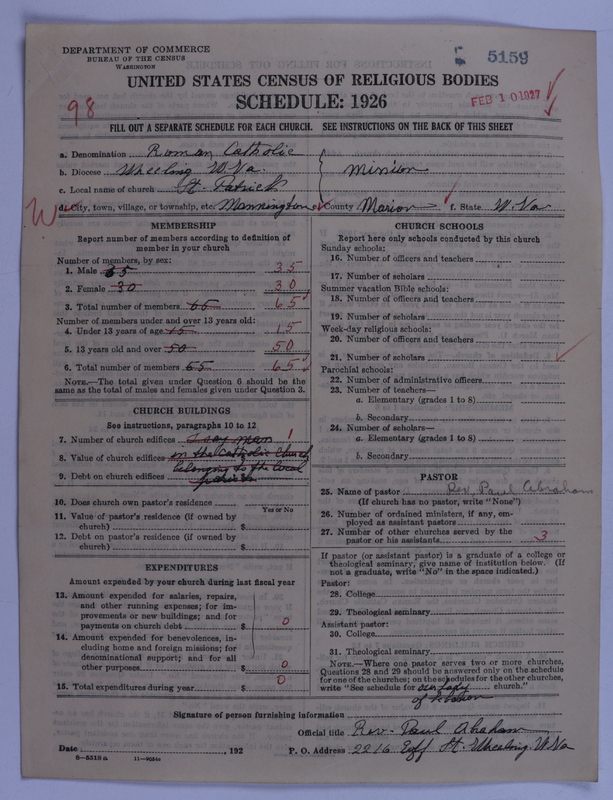 DEPARTMENT OF COMMERCE
BUREAU OF THE CENSUS
WASHINGTON
5159
UNITED STATES CENSUS OF RELIGIOUS BODIES
SCHEDULE: 1926
98
FEB 10 1927
FILL OUT A SEPARATE SCHEDULE FOR EACH CHURCH. SEE INSTRUCTIONS ON THE BACK OF THIS SHEET
a. Denomination Roman Catholic
b. Diocese Wheeling W. Va.
Mission
c. Local name of church St. Patrick
W
d. City, town, village, or township, etc. Mannington e. County Marion f. State W. Va
MEMBERSHIP
Report number of members according to definition of
member in your church
Number of members, by sex:
1. Male 35 35
2. Female 30 30
3. Total number of members 65 65
Number of members under and over 13 years old:
4. Under 13 years of age 15 15
5. 13 years old and over 50 50
6. Total number of members 65 65
NOTE.—The total given under Question 6 should be the
same as the total of males and females given under Question 3.
CHURCH BUILDINGS
See instructions, paragraphs 10 to 12
7. Number of church edifices I say mass 1
8. Value of church edifices in the Catholic Church
9. Debt on church edifices belonging to the local
parish
10. Does church own pastor's residence
Yes or No
11. Value of pastor's residence (if owned by
church) $
12. Debt on pastor's residence (if owned by
church) $
EXPENDITURES
Amount expended by your church during last fiscal year
13. Amount expended for salaries, repairs,
and other running expenses; for im-
provements or new buildings; and for
payments on church debt $ 0
14. Amount expended for benevolences, in-
cluding home and foreign missions; for
denominational support; and for all
other purposes $ 0
15. Total expenditures during year $ 0
CHURCH SCHOOLS
Report here only schools conducted by this church
Sunday schools:
16. Number of officers and teachers
17. Number of scholars
Summer vacation Bible schools:
18. Number of officers and teachers
19. Number of scholars
Week-day religious schools:
20. Number of officers and teachers
21. Number of scholars
Parochial schools:
22. Number of administrative officers
23. Number of teachers—
a. Elementary (grades 1 to 8)
b. Secondary
24. Number of scholars—
a. Elementary (grades 1 to 8)
b. Secondary
PASTOR
25. Name of pastor Rev. Paul Abraham
(If church has no pastor, write "None")
26. Number of ordained ministers, if any, em-
ployed as assistant pastors
27. Number of other churches served by the
pastor or his assistants 3
If pastor (or assistant pastor) is a graduate of a college or
theological seminary, give name of institution below. (If
not a graduate, write "No" in the space indicated.)
Pastor:
28. College
29. Theological seminary
Assistant pastor:
30. College
31. Theological seminary
NOTE.—Where one pastor serves two or more churches,
Questions 28 and 29 should be answered only on the schedule
for one of the churches; on the schedules for the other churches,
write "See schedule for our Lady church."
of Lebanon
Signature of person furnishing information
Official title Rev. Paul Abraham
Date , 192 P. O. Address 2216 Eoff St. Wheeling, W. Va
6—5518a 11—9054c